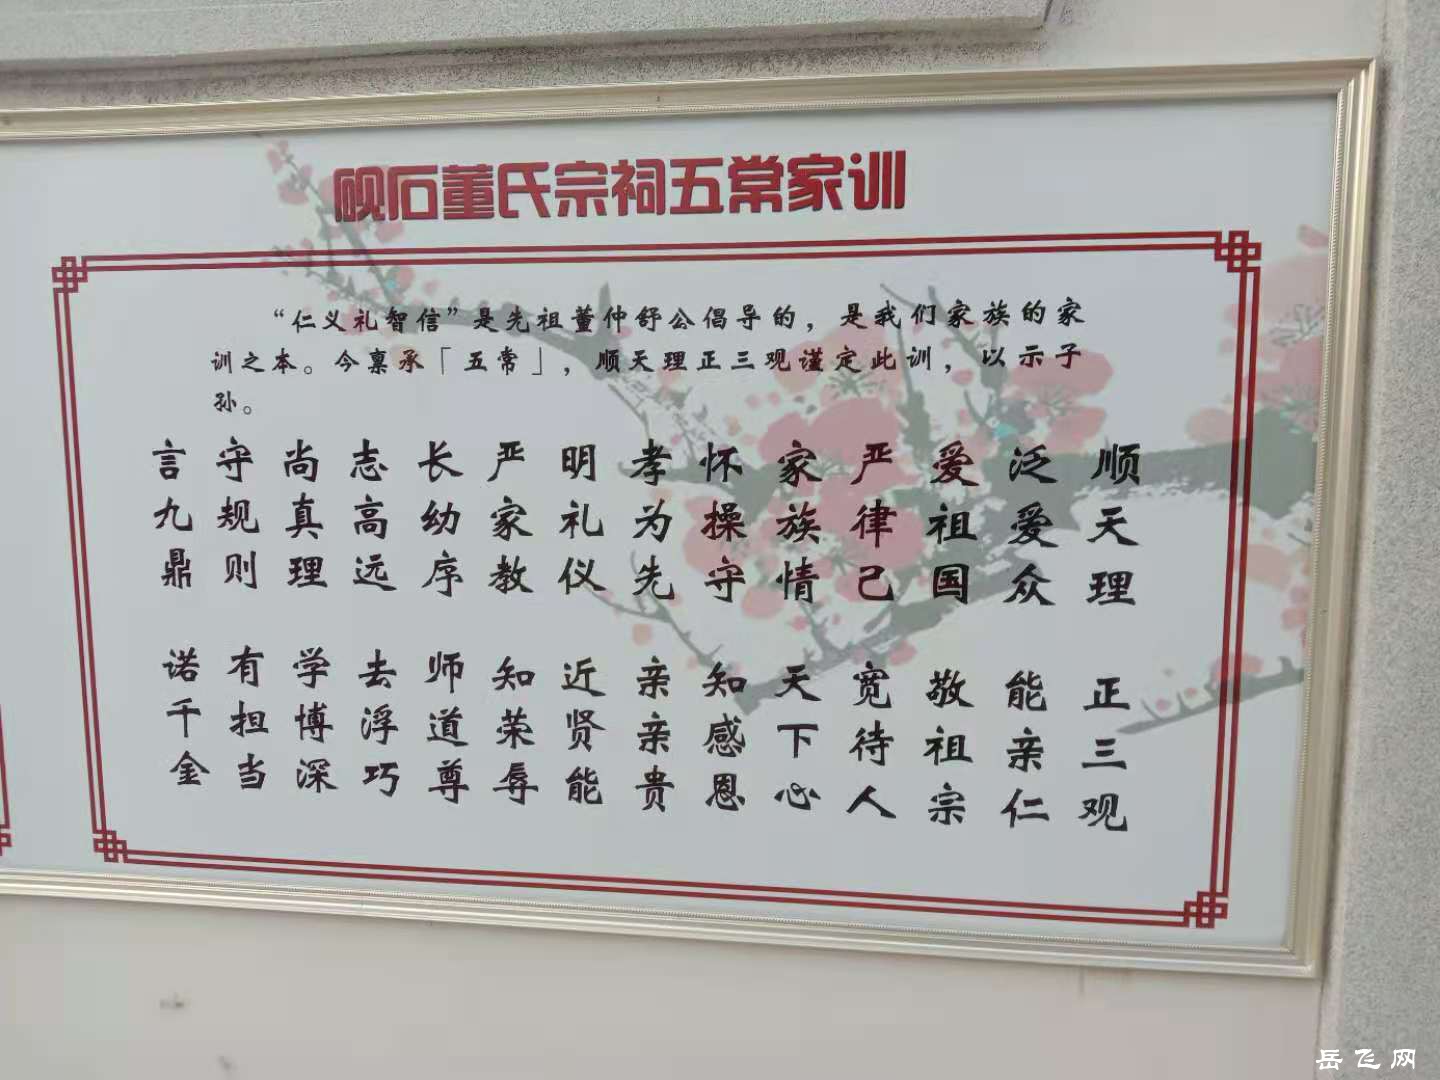 砚石董氏宗祠五常家训
“仁义礼智信”是先祖董仲舒公倡导的，是我们家族的家
训之本。今禀承「五常」，顺天理正三观谨定此训，以示子
孙。
顺天理 正三观
泛爱众 能亲仁
爱祖国 敬祖宗
严律己 宽待人
家族情 天下心
怀操守 知感恩
孝为先 亲亲贵
明礼仪 近贤能
严家教 知荣辱
长幼序 师道尊
志高远 去浮巧
尚真理 学博深
守规则 有担当
言九鼎 诺千金
岳飞网